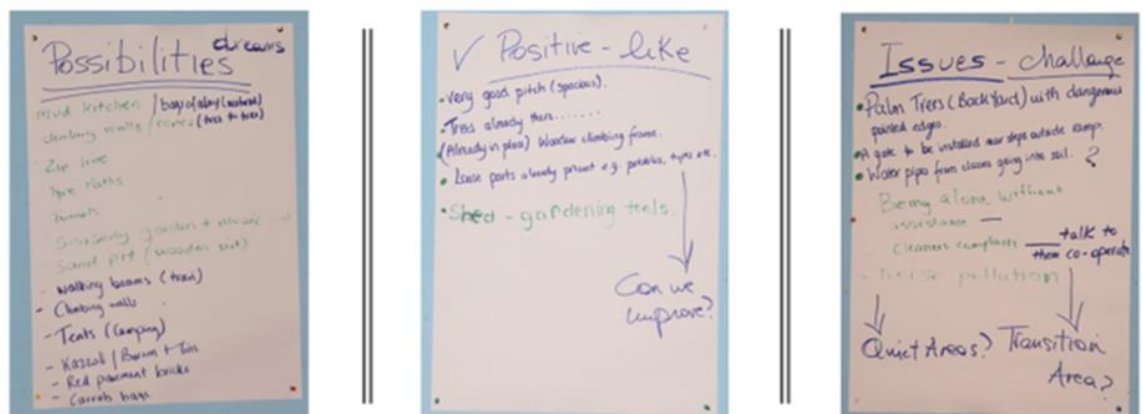 Possibilities dreams
mud kitchen / bags of clay (natural)
climbing walls / ropes (tree to tree)
Zip line
Type paths
Tunnels
Sensory garden +
Sand pit (wooden
- walking beams (train)
- Climbing walls
- Tents (Camping)
- Kazzoli / Barum + Tins
- Red pavement bricks
- Carrots bags
✓ Positive - like
• Very good pitch (spacious).
• Trees already there.......
(Already in place) Wooden climbing frame.
• Loose parts already present e.g. tyres etc.
• Shed - gardening tools.
Can we
improve?
Issues - challange
• Palm Trees (BackYard) with dangerous
pointed edges.
• A gate to be installed near steps outside ramp.
• Water pipes from classes going into soil. ?
Being alone without
assistance —
Cleaners complain — talk to
them co-operate
- noise pollution
Quiet Areas? Transition
Area?